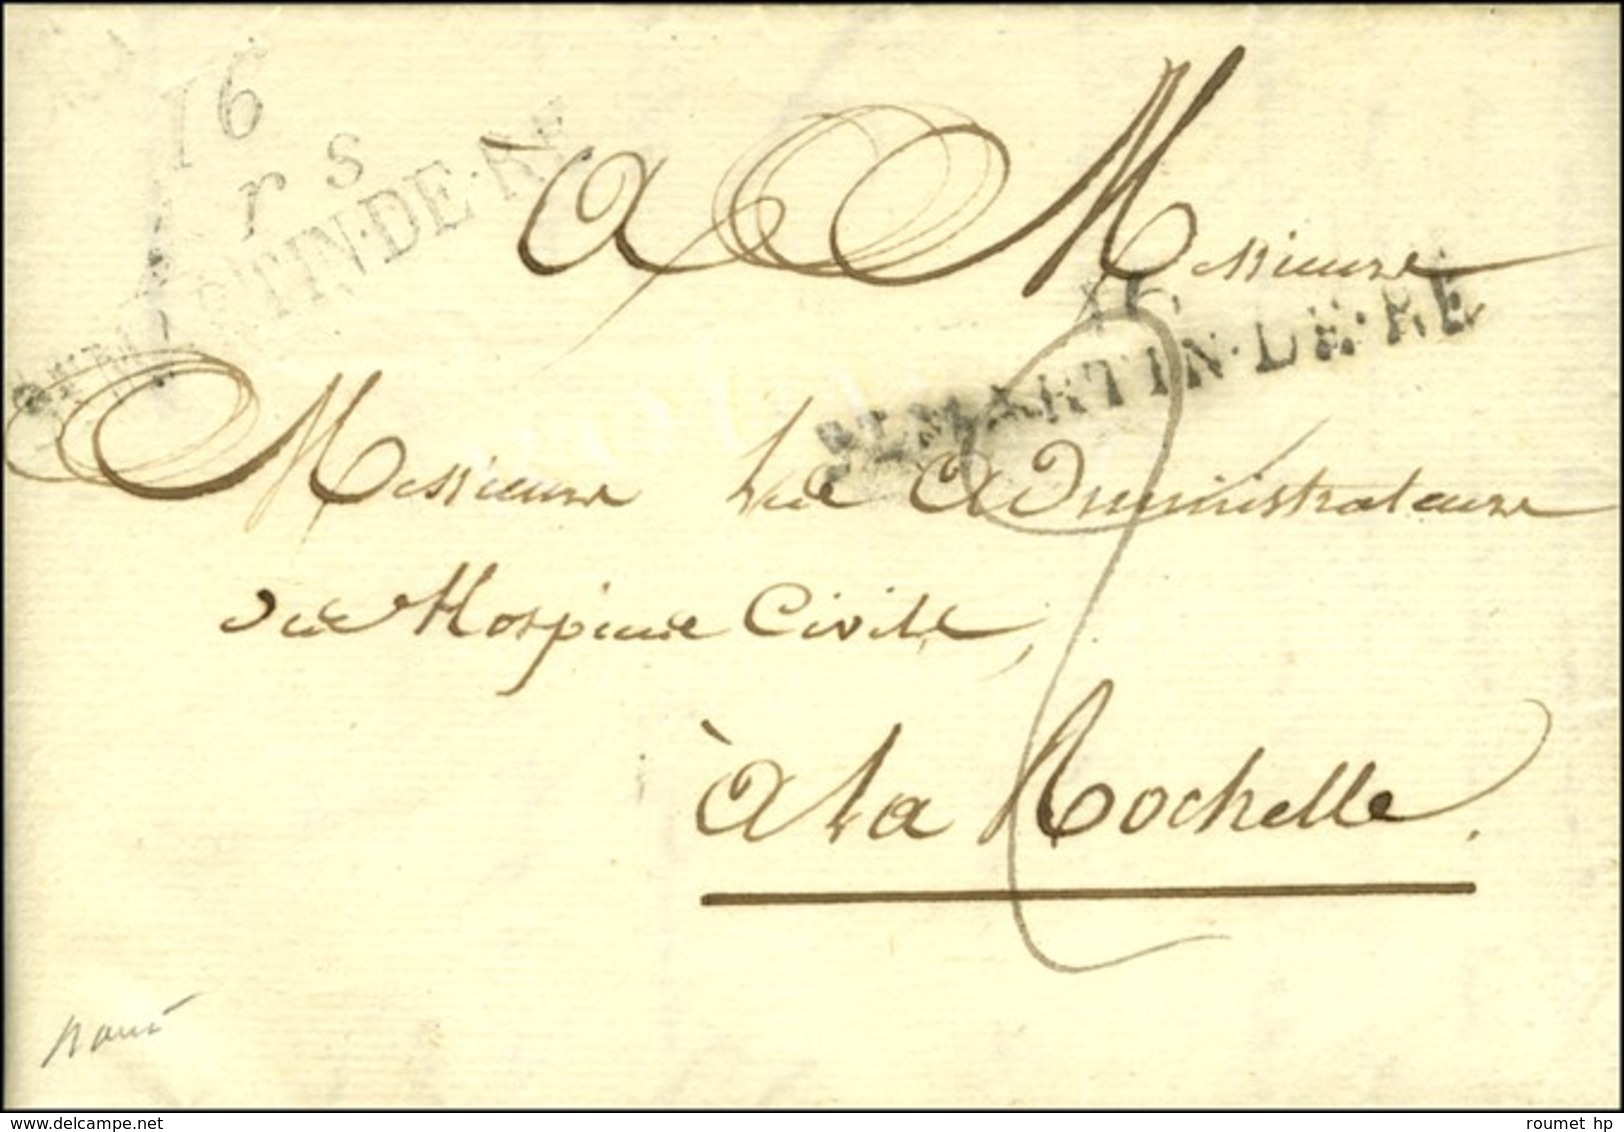 16
r s
ST MARTIN·DE·RE
à Messieurs
16
ST MARTIN·DE·RE
Messieurs les Administrateurs
des Hospices Civils,
à La Rochelle.
2
delcampe.net
roumet hp